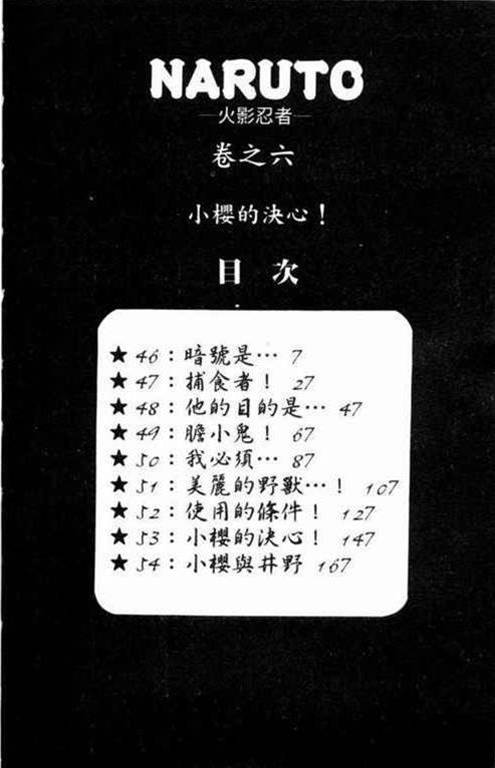 NARUTO
—火影忍者—
卷之六
小櫻的決心！
目次
★46：暗號是… 7
★47：捕食者！ 27
★48：他的目的是… 47
★49：膽小鬼！ 67
★50：我必須… 87
★51：美麗的野獸…！ 107
★52：使用的條件！ 127
★53：小櫻的決心！ 147
★54：小櫻與井野 167